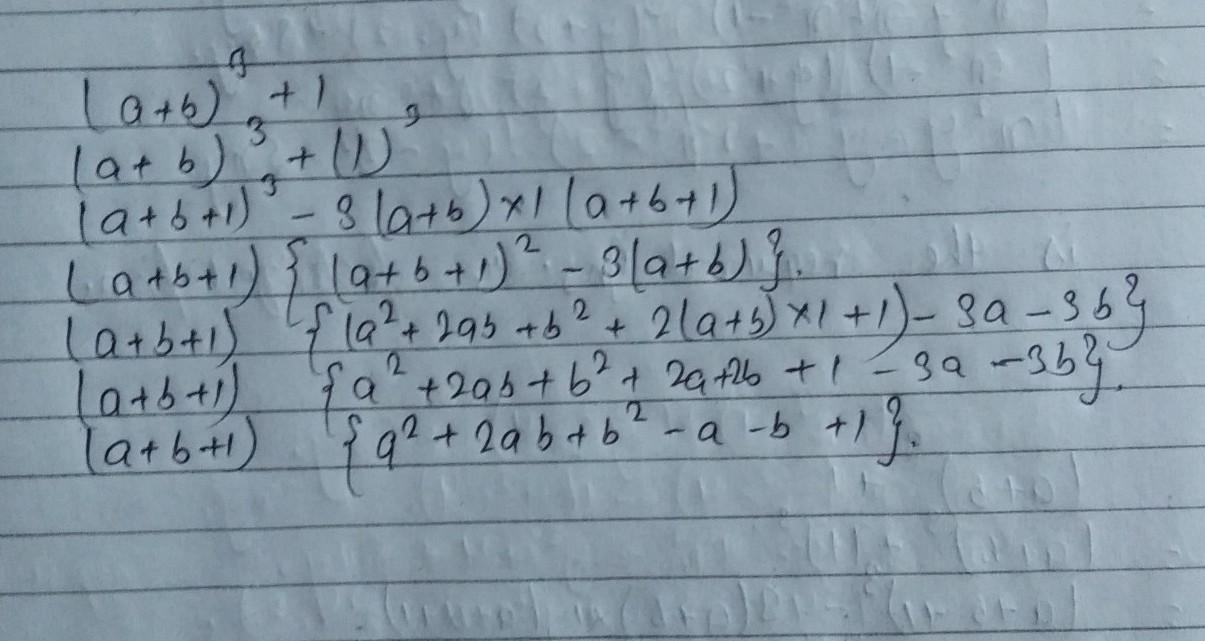 (a+b)³ + 1
(a+b)³ + (1)³
(a+b+1)³ - 3(a+b)×1(a+b+1)
(a+b+1) {(a+b+1)² - 3(a+b)}.
(a+b+1) {(a²+2ab+b²+2(a+b)×1+1)-3a-3b}
(a+b+1) {a²+2ab+b²+2a+2b+1-3a-3b}.
(a+b+1) {a²+2ab+b²-a-b+1}.